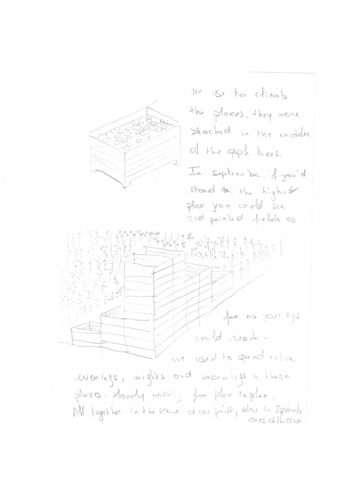 We use to climb
the ploxes, they were
stocked in the middle
of the apple trees.
In september, if you'd
stand in the highest
plox you could see
red pointed fields as
far as your eye
could reach.
we used to spend entire
evenings, nights and mornings in these
ploxes. slowly moving from plox to plox.
All together in the same